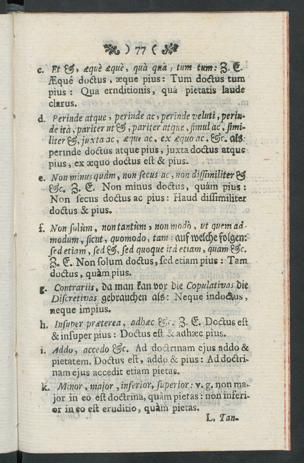 ) 77 (
c. Et &, æquè æquè, quà quà, tum tum: Z. E.
Æquè doctus, æque pius: Tum doctus tum
pius: Qua ernditionis, quà pietatis laude
clarus.
d. Perinde atque, perinde ac, perinde veluti, perin-
de ità, pariter ut &, pariter atque, simul ac, simi-
liter &, juxta ac, æque ac, ex æquo ac. &c. als
perinde doctus atque pius, juxta doctus atque
pius, ex æquo doctus est & pius.
e. Non minus quàm, non secus ac, non dissimiliter &
&c. Z. E. Non minus doctus, quàm pius:
Non secus doctus ac pius: Haud dissimiliter
doctus & pius.
f. Non solùm, non tantùm, non modò, ut quem ad-
modum, sicut, quomodo, tam: auf welche folgen:
sed etiam, sed &, sed quoque ità etiam, quàm &c.
Z. E. Non solum doctus, sed etiam pius: Tam
doctus, quàm pius.
g. Contrariis, da man kan vor die Copulativas die
Discretivas gebrauchen als: Neque indoctus,
neque impius.
h. Insuper præterea, adhæc &c. Z. E. Doctus est
& insuper pius: Doctus est & adhæc pius.
i. Addo, accedo &c. Ad doctrinam ejus addo &
pietatem. Doctus est, addo & pius: Ad doctri-
nam ejus accedit etiam pietas.
k. Minor, major, inferior, superior: v. g. non ma-
jor in eo est doctrina, quàm pietas: non inferi-
or in eo est eruditio, quàm pietas.
L. Tan-